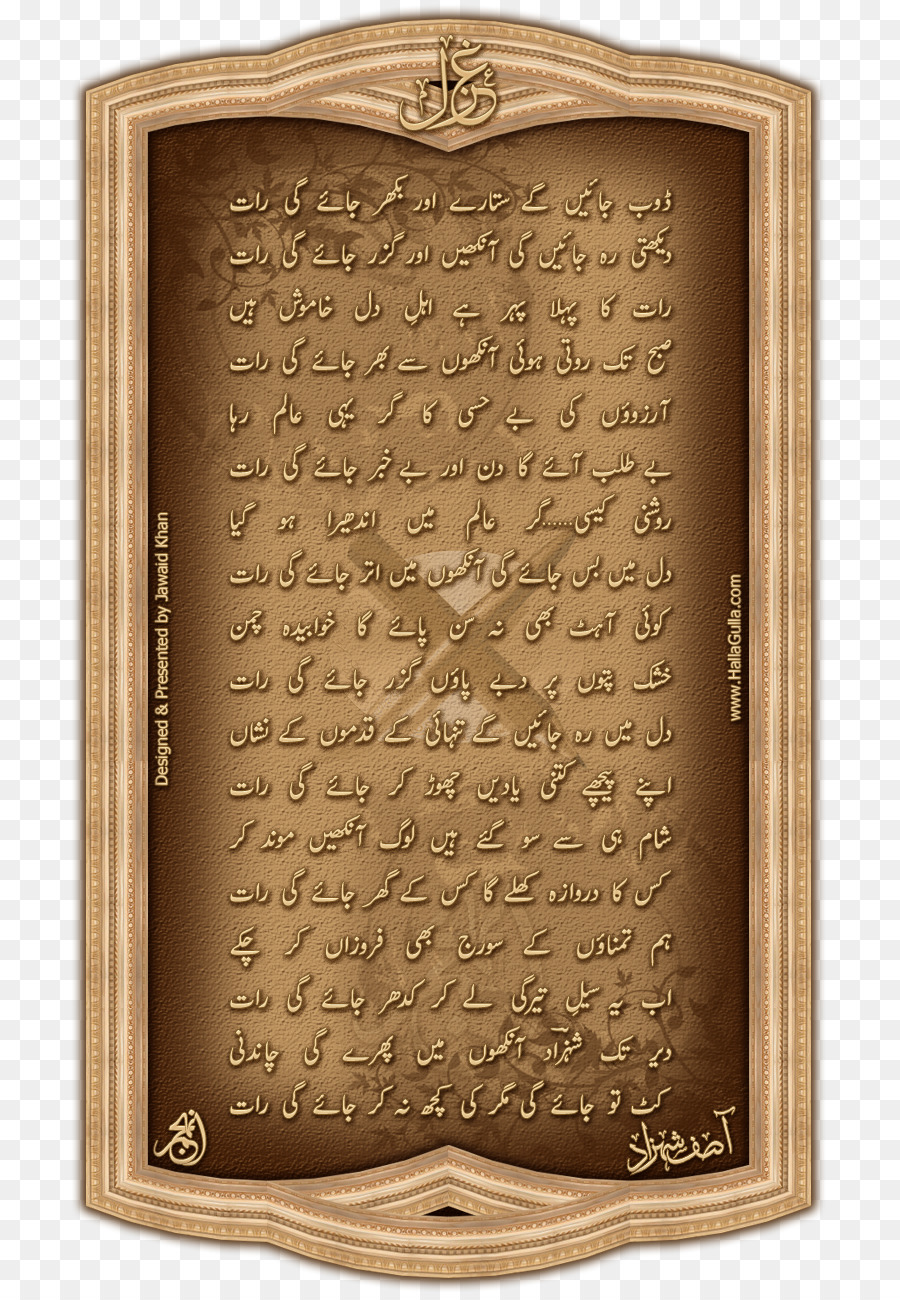 غزل
ڈوب جائیں گے ستارے اور بکھر جائے گی رات
دیکھتی رہ جائیں گی آنکھیں اور گزر جائے گی رات
رات کا پہلا پہر ہے اہلِ دل خاموش ہیں
صبح تک روتی ہوئی آنکھوں سے بھر جائے گی رات
آرزوؤں کی بے حسی کا گر یہی عالم رہا
بے طلب آئے گا دن اور بے خبر جائے گی رات
روشنی کیسی......گر عالم میں اندھیرا ہو گیا
دل میں بس جائے گی آنکھوں میں اتر جائے گی رات
کوئی آہٹ بھی نہ سن پائے گا خوابیدہ چمن
خشک پتوں پر دبے پاؤں گزر جائے گی رات
دل میں رہ جائیں گے تنہائی کے قدموں کے نشاں
اپنے پیچھے کتنی یادیں چھوڑ کر جائے گی رات
شام ہی سے سو گئے ہیں لوگ آنکھیں موند کر
کس کا دروازہ کھلے گا کس کے گھر جائے گی رات
ہم تمناؤں کے سورج بھی فروزاں کر چکے
اب یہ سیلِ تیرگی لے کر کدھر جائے گی رات
دیر تک شہزاد آنکھوں میں پھرے گی چاندنی
کٹ تو جائے گی مگر کی کچھ نہ کر جائے گی رات
آصف شہزاد
Designed & Presented by Jawaid Khan
www.HallaGulla.com